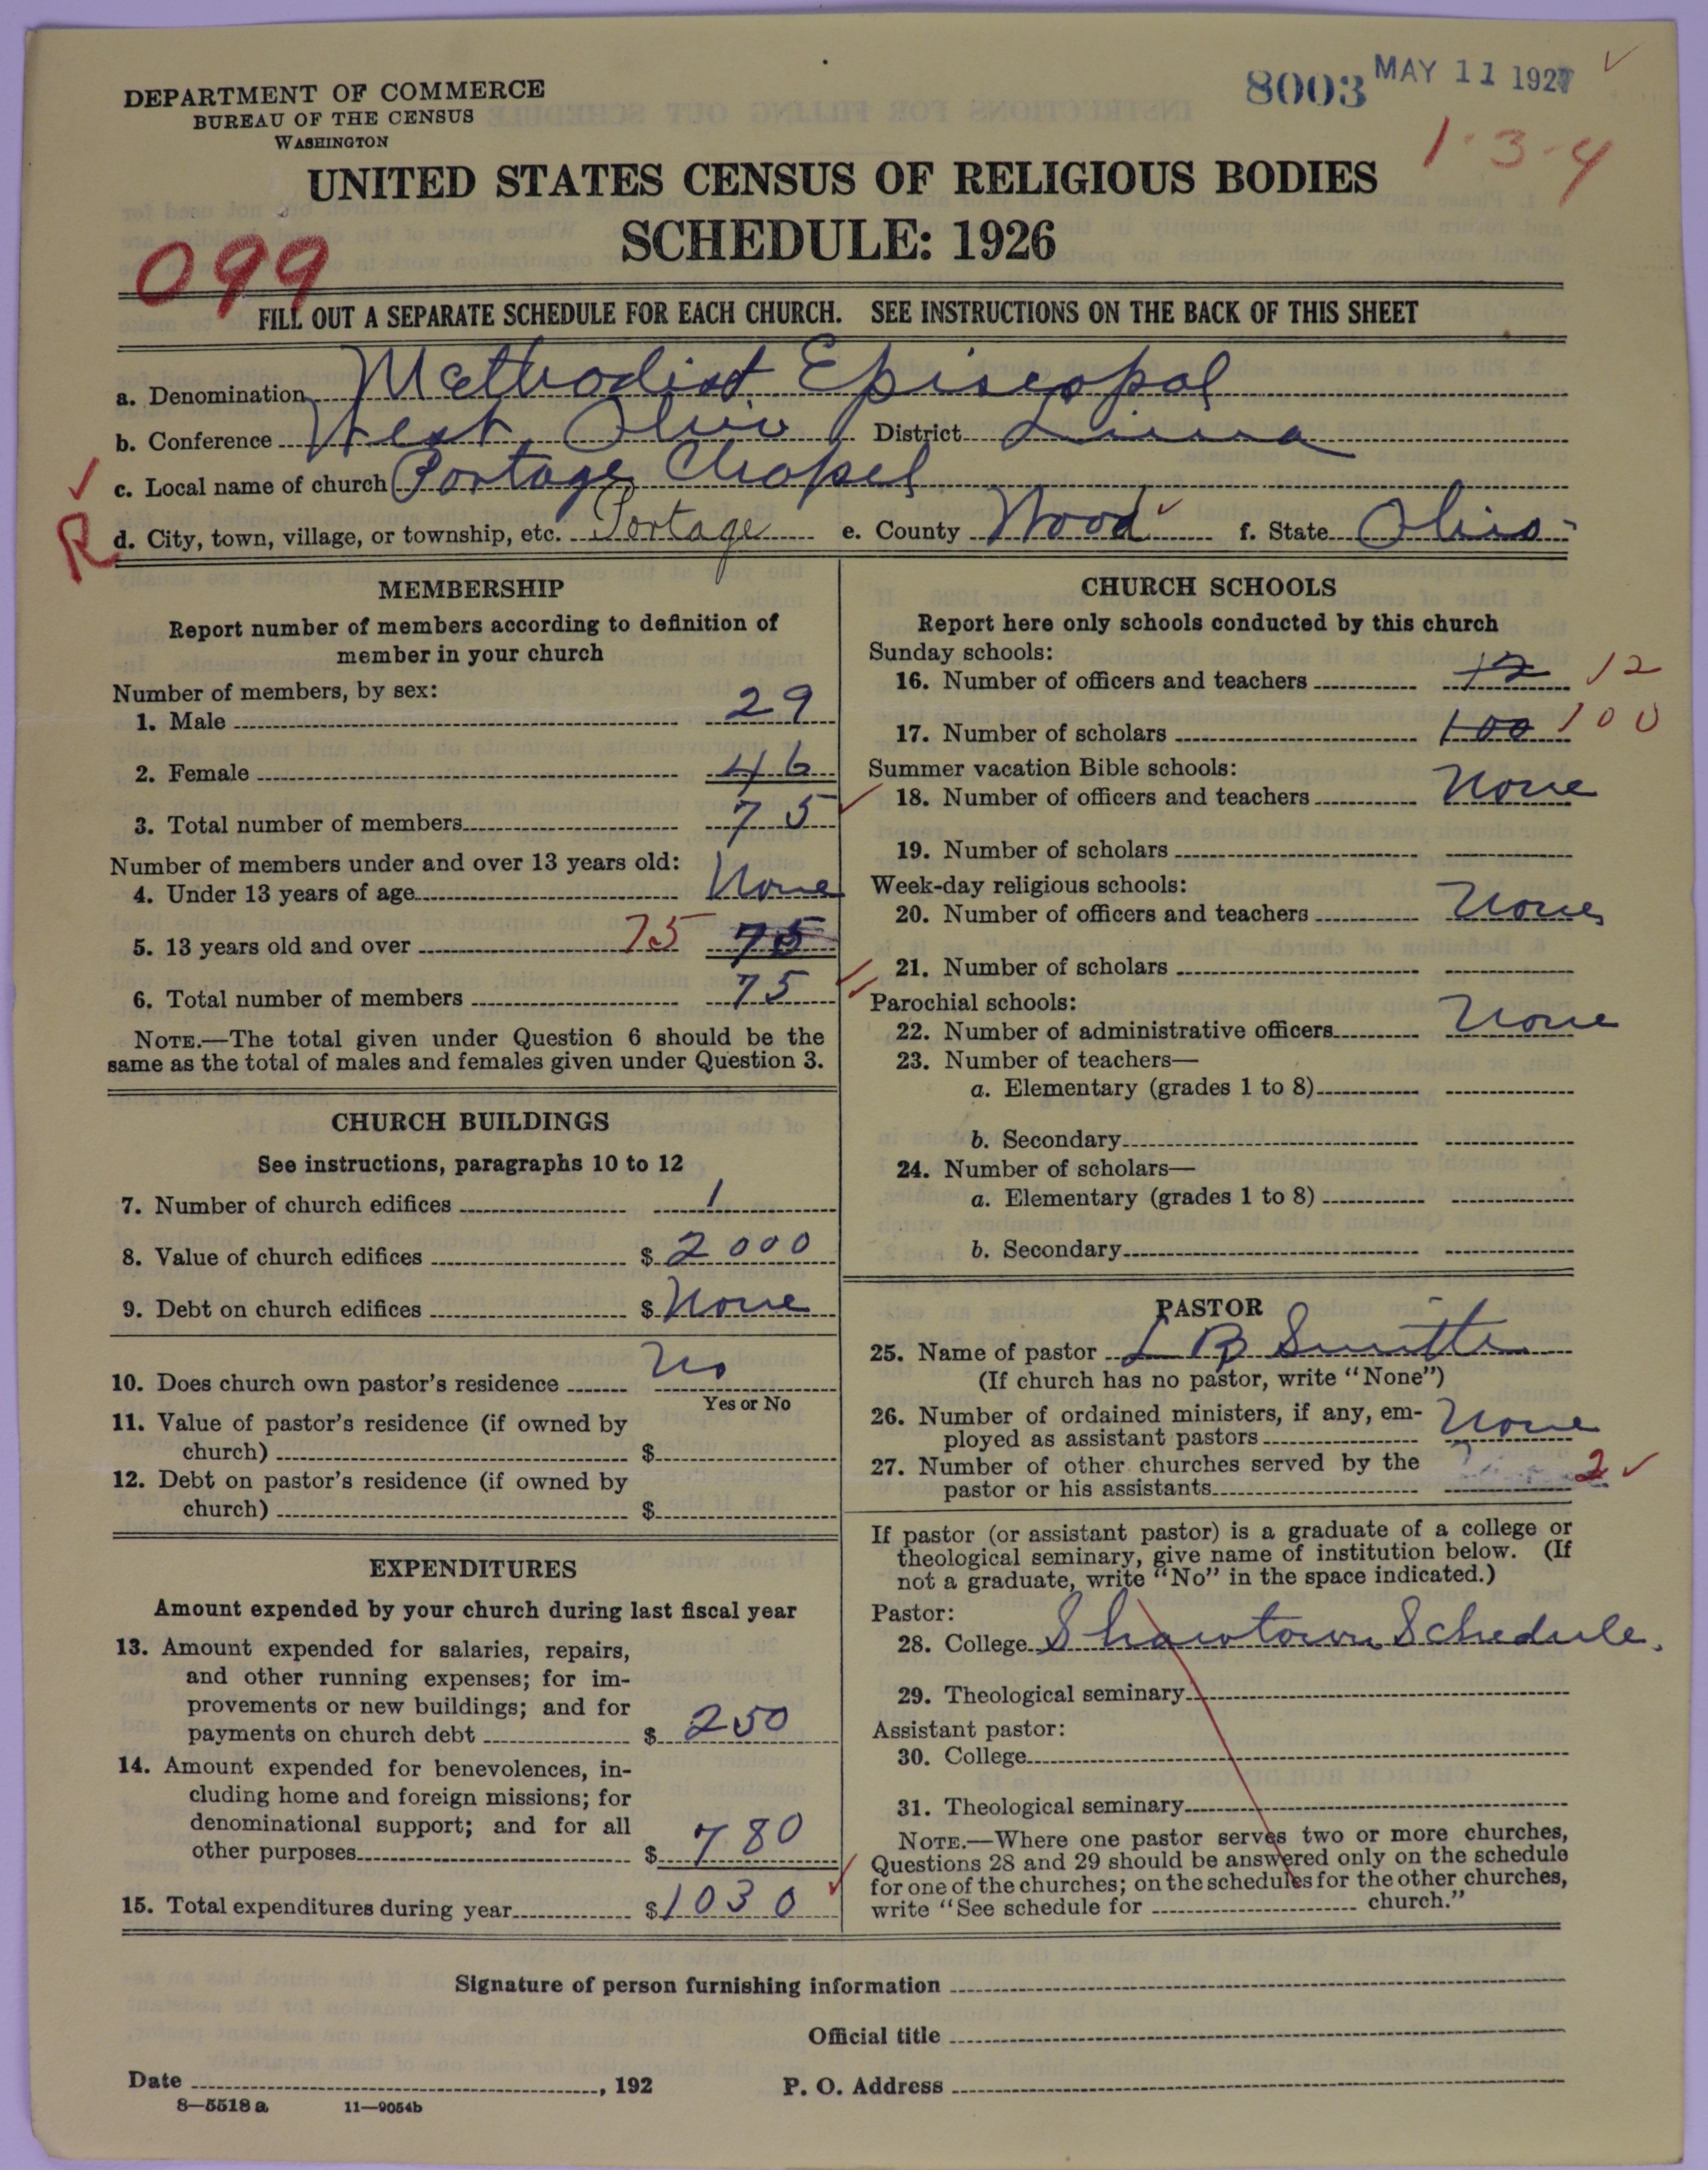 DEPARTMENT OF COMMERCE
BUREAU OF THE CENSUS
WASHINGTON
8003 MAY 11 1927
1-3-4
UNITED STATES CENSUS OF RELIGIOUS BODIES
SCHEDULE: 1926
099
FILL OUT A SEPARATE SCHEDULE FOR EACH CHURCH. SEE INSTRUCTIONS ON THE BACK OF THIS SHEET
a. Denomination Methodist Episcopal
b. Conference West Ohio District Lima
c. Local name of church Portage Chapel
R d. City, town, village, or township, etc. Portage e. County Wood f. State Ohio
MEMBERSHIP
Report number of members according to definition of
member in your church
Number of members, by sex:
1. Male 29
2. Female 46
3. Total number of members 75
Number of members under and over 13 years old:
4. Under 13 years of age None
5. 13 years old and over 75 75
6. Total number of members 75
NOTE.—The total given under Question 6 should be the
same as the total of males and females given under Question 3.
CHURCH BUILDINGS
See instructions, paragraphs 10 to 12
7. Number of church edifices 1
8. Value of church edifices $ 2000
9. Debt on church edifices $ None
10. Does church own pastor's residence No
Yes or No
11. Value of pastor's residence (if owned by
church) $
12. Debt on pastor's residence (if owned by
church) $
EXPENDITURES
Amount expended by your church during last fiscal year
13. Amount expended for salaries, repairs,
and other running expenses; for im-
provements or new buildings; and for
payments on church debt $ 250
14. Amount expended for benevolences, in-
cluding home and foreign missions; for
denominational support; and for all
other purposes $ 780
15. Total expenditures during year $ 1030
CHURCH SCHOOLS
Report here only schools conducted by this church
Sunday schools:
16. Number of officers and teachers 12 12
17. Number of scholars 100 100
Summer vacation Bible schools:
18. Number of officers and teachers None
19. Number of scholars
Week-day religious schools:
20. Number of officers and teachers None
21. Number of scholars
Parochial schools:
22. Number of administrative officers None
23. Number of teachers—
a. Elementary (grades 1 to 8)
b. Secondary
24. Number of scholars—
a. Elementary (grades 1 to 8)
b. Secondary
PASTOR
25. Name of pastor L B Smith
(If church has no pastor, write "None")
26. Number of ordained ministers, if any, em-
ployed as assistant pastors None
27. Number of other churches served by the
pastor or his assistants 2
If pastor (or assistant pastor) is a graduate of a college or
theological seminary, give name of institution below. (If
not a graduate, write "No" in the space indicated.)
Pastor:
28. College Shawtown Schedule.
29. Theological seminary
Assistant pastor:
30. College
31. Theological seminary
NOTE.—Where one pastor serves two or more churches,
Questions 28 and 29 should be answered only on the schedule
for one of the churches; on the schedules for the other churches,
write "See schedule for church."
Signature of person furnishing information
Official title
Date , 192 P. O. Address
8—5518 a 11—9054b